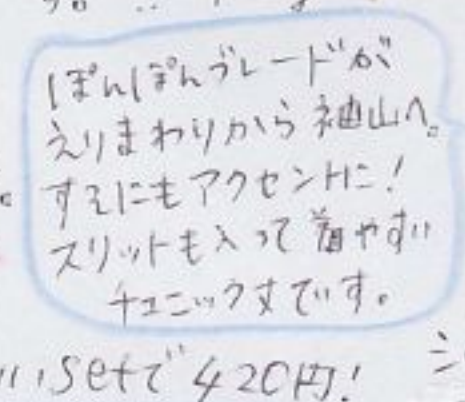 ぽんぽんブレードが
えりまわりから袖山へ。
すそにもアクセントに!
スリットも入って着やすい
チュニック丈です。
setで420円!